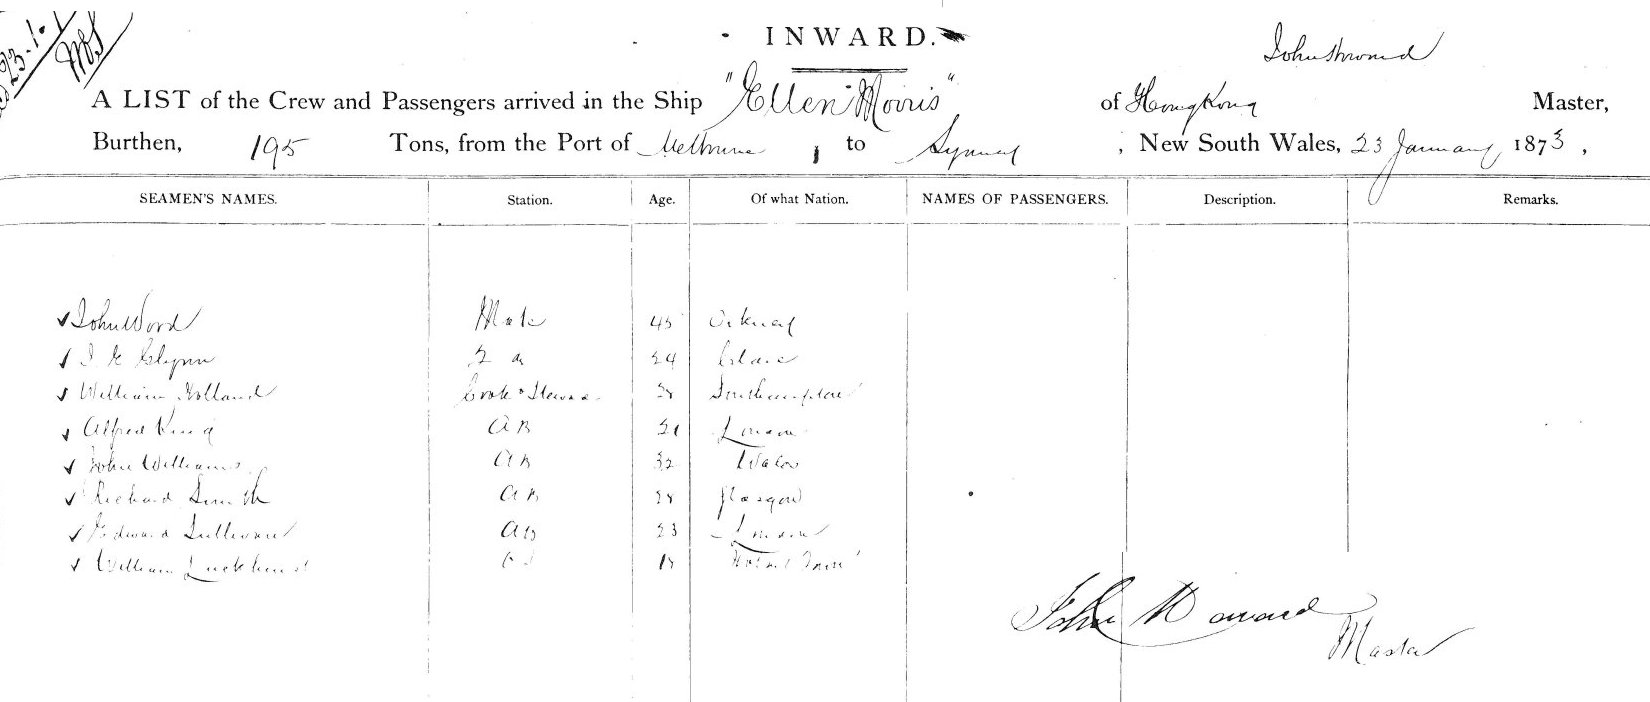 23.1.
INWARD.
John Howard
A LIST of the Crew and Passengers arrived in the Ship "Ellen Morris" of Hong Kong Master,
Burthen, 195 Tons, from the Port of Melbourne, to Sydney, New South Wales, 23 January 1873,
SEAMEN'S NAMES. Station. Age. Of what Nation. NAMES OF PASSENGERS. Description. Remarks.
John Wood Mate 45 Orkney
Glynn 2 24 Clare
William Holland Cook & Steward Southampton
Alfred King AB London
John Williams AB 32 Wales
Richard Smith AB Glasgow
Edward Sullivan AB 23 London
William Luckhurst OS Hobart Town
John Howard
Master